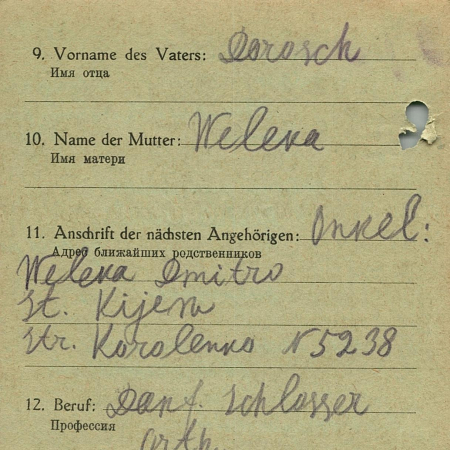 9. Vorname des Vaters: Dorosch
Имя отца
10. Name der Mutter: Welena
Имя матери
11. Anschrift der nächsten Angehörigen: Onkel:
Адрес ближайших родственников
Welena Dmitro
St. Kijem
Str. Korolenko N 5238
12. Beruf: Schlosser
Профессия